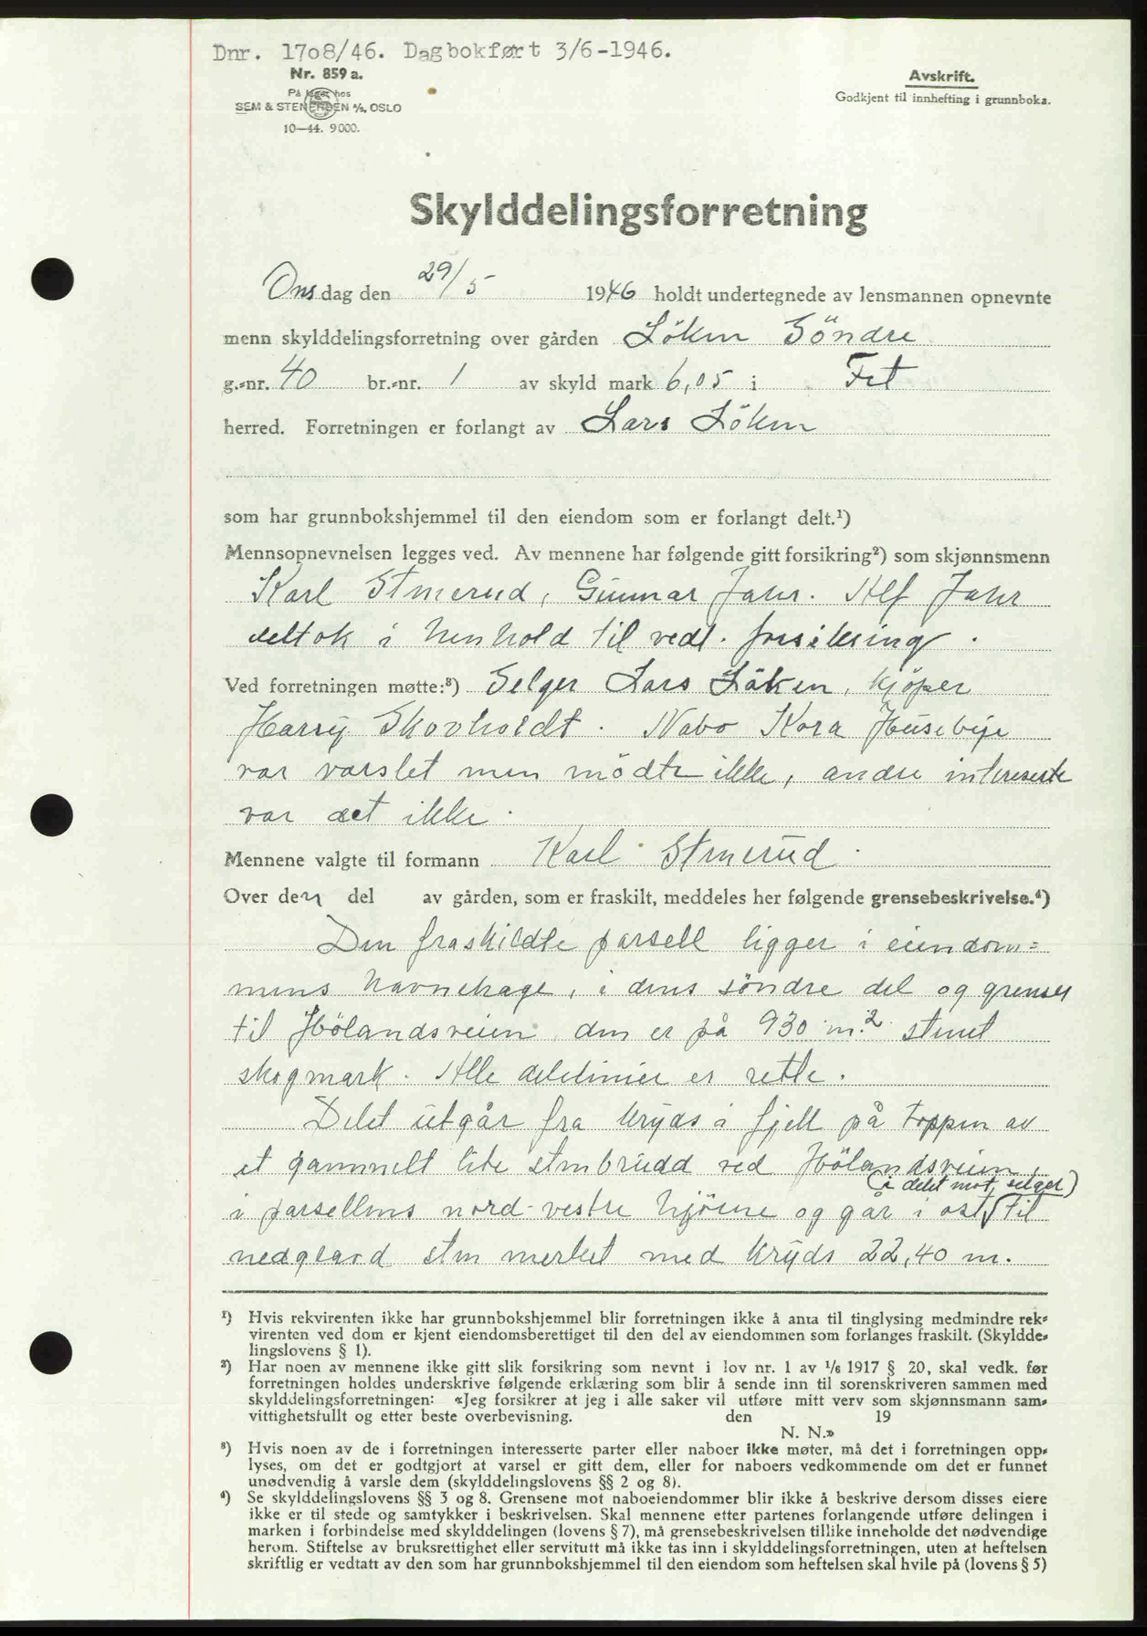 Dnr. 1708/46. Dagbokført 3/6-1946.
Nr. 859 a.
På lager hos
SEM & STENERSEN A/S, OSLO
10—44. 9000.
Avskrift.
Godkjent til innhefting i grunnboka.
Skylddelingsforretning
Onsdag den 29/5 1946 holdt undertegnede av lensmannen opnevnte
menn skylddelingsforretning over gården Löken Söndre
g.-nr. 40 br.-nr. 1 av skyld mark 6,05 i Fet
herred. Forretningen er forlangt av Lars Löken
som har grunnbokshjemmel til den eiendom som er forlangt delt.¹)
Mennsopnevnelsen legges ved. Av mennene har følgende gitt forsikring²) som skjønnsmenn
Karl Stmerud, Gunnar Jahr. Alf Jahr
deltok i henhold til vedl. forsikring.
Ved forretningen møtte:³) Selger Lars Löken, kjöper
Harry Skovholdt. Nabo Kora Huseby
var varslet men mödte ikke, andre intereserte
var det ikke.
Mennene valgte til formann Karl Stmerud.
Over den del av gården, som er fraskilt, meddeles her følgende grensebeskrivelse.⁴)
Den fraskildte parsell ligger i eiendom=
mens havnehage, i dens söndre del og grenser
til Hölandsveien, den er på 930 m.² stenet
skogmark. Alle delelinier er rette.
Delet utgår fra kryds i fjell på toppen av
et gammelt lite stenbrudd ved Hölandsveien,
(i delet mot selger)
i parsellens nord-vestre hjörne og går i ost til
nedgravd sten merket med kryds 22,40 m.
¹) Hvis rekvirenten ikke har grunnbokshjemmel blir forretningen ikke å anta til tinglysing medmindre rek-
virenten ved dom er kjent eiendomsberettiget til den del av eiendommen som forlanges fraskilt. (Skyldde-
lingslovens § 1).
²) Har noen av mennene ikke gitt slik forsikring som nevnt i lov nr. 1 av 1/6 1917 § 20, skal vedk. før
forretningen holdes underskrive følgende erklæring som blir å sende inn til sorenskriveren sammen med
skylddelingsforretningen: «Jeg forsikrer at jeg i alle saker vil utføre mitt verv som skjønnsmann sam-
vittighetsfullt og etter beste overbevisning. den 19
N. N.»
³) Hvis noen av de i forretningen interesserte parter eller naboer ikke møter, må det i forretningen opp-
lyses, om det er godtgjort at varsel er gitt dem, eller for naboers vedkommende om det er funnet
unødvendig å varsle dem (skylddelingslovens §§ 2 og 8).
⁴) Se skylddelingslovens §§ 3 og 8. Grensene mot naboeiendommer blir ikke å beskrive dersom disses eiere
ikke er til stede og samtykker i beskrivelsen. Skal mennene etter partenes forlangende utføre delingen i
marken i forbindelse med skylddelingen (lovens § 7), må grensebeskrivelsen tillike inneholde det nødvendige
herom. Stiftelse av bruksrettighet eller servitutt må ikke tas inn i skylddelingsforretningen, uten at heftelsen
skriftlig er vedtatt av den som har grunnbokshjemmel til den eiendom som heftelsen skal hvile på (lovens § 5)